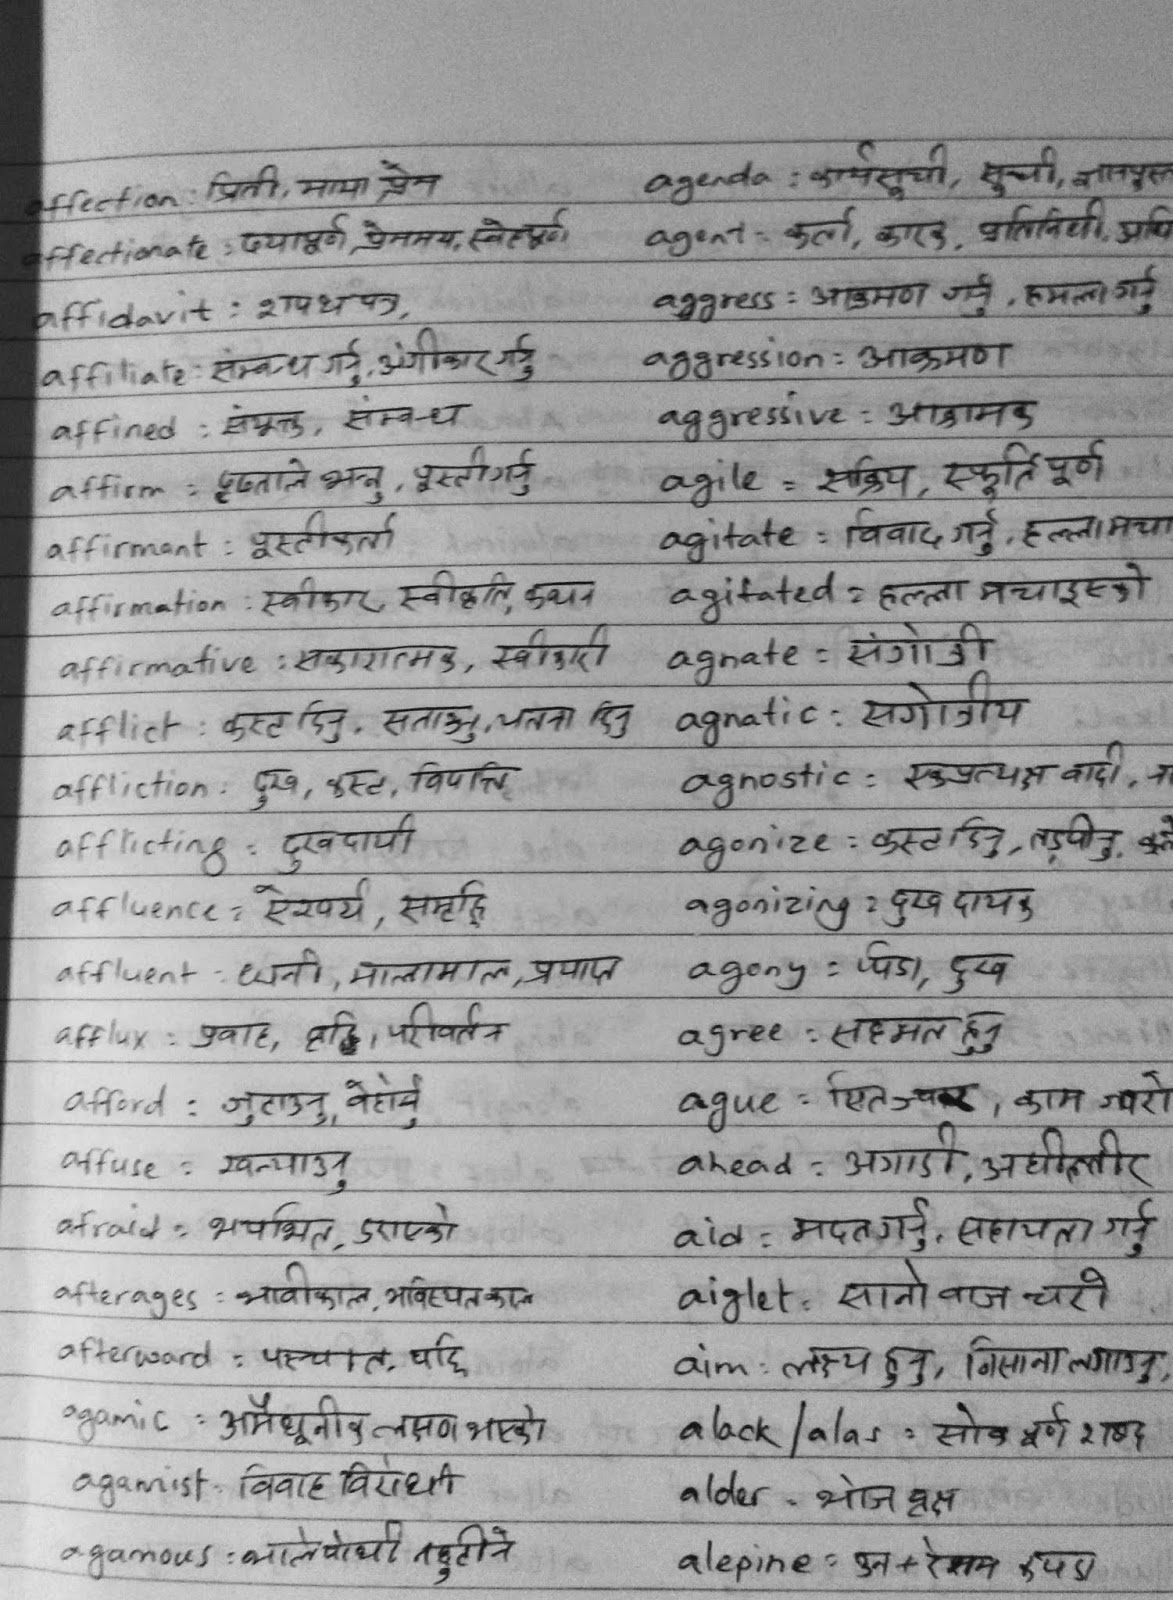 affection : प्रिती, माया प्रेम
affectionate : दयापूर्ण, प्रेममय, स्नेहपूर्ण
affidavit : शपथ पत्र,
affiliate : संम्बन्ध गर्नु, अंगीकार गर्नु
affined : संयुक्त, संम्बन्ध
affirm : दृढताले भन्नु, पूस्ती गर्नु
affirmant : पूस्तीकर्ता
affirmation : स्वीकार, स्वीकृति, कथन
affirmative : सकारात्मक, स्वीकारी
afflict : कस्ट दिनु, सताउनु, यतना दिनु
affliction : दुख, कस्ट, विपत्ति
afflicting : दुखदायी
affluence : ऐश्वर्य, समृद्धि
affluent : धनी, मालामाल, प्रयाप्त
afflux : प्रवाह, बृद्धि, परीवर्तन
afford : जुटाउनु, बेहोर्नु
affuse : खन्याउनु
afraid : भयभित, डराएको
afterages : भावीकाल, भविस्यतकाल
afterward : पस्चात, पछि
agamic : अमैथूनीक लक्षण भएको
agamist : विवाह विरोधी
agamous : भालेपोथी नछुटीने
agenda : कार्यसूची, सूची,
agent : कर्ता, कारक, प्रतिनिधी,
aggress : आक्रमण गर्नु, हमला गर्नु
aggression : आक्रमण
aggressive : आक्रामक
agile : सक्रिय, स्फूर्ति पूर्ण
agitate : विवाद गर्नु, हल्ला मचा
agitated : हल्ला मच्चाइएको
agnate : संगोत्री
agnatic : सगोत्रीय
agnostic : वादी,
agonize : कस्ट दिनु, तड्पीनु,
agonizing : दुख दायक
agony : पिडा, दुख
agree : सहमत हुनु
ague : सितज्वर, काम ज्वरो
ahead : अगाडी, अघील्तीर
aid : मदत गर्नु, सहायता गर्नु
aiglet : सानो बाज चरी
aim : लक्ष्य हुनु, निसाना लगाउनु,
alack/alas : सोक पूर्ण शब्द
alder : भोज बृक्ष
alepine : उन + रेसम कपडा